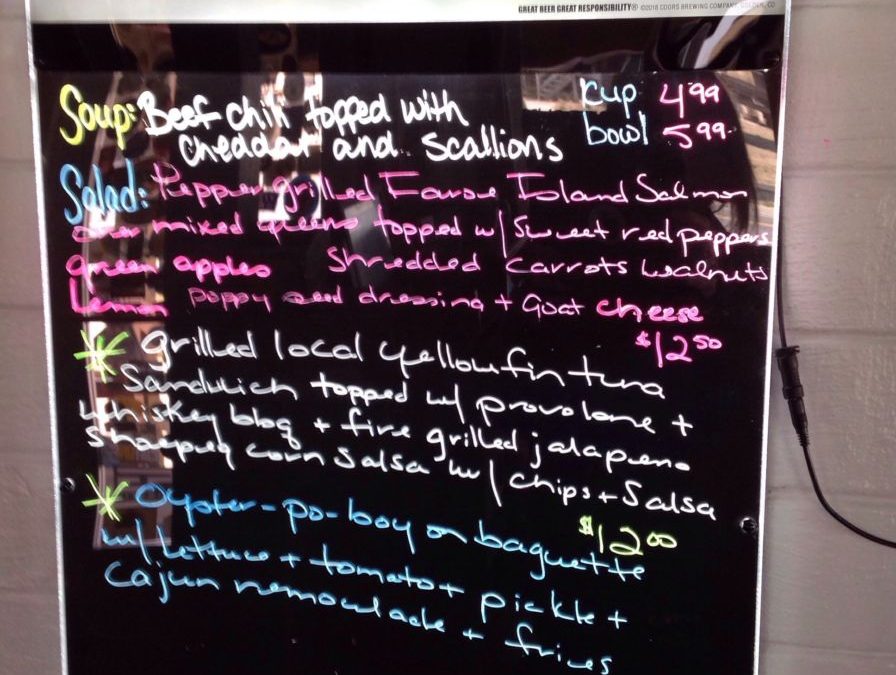 GREAT BEER GREAT RESPONSIBILITY® ©2018 COORS BREWING COMPANY, GOLDEN, CO
Soup: Beef chili topped with cup 4.99
cheddar and scallions bowl 5.99
Salad: Pepper grilled Faroe Island Salmon
over mixed greens topped w/ Sweet red peppers
green apples Shredded carrots walnuts
Lemon poppy seed dressing + Goat cheese
$12.50
* Grilled local yellowfin tuna
Sandwich topped w/ provolone +
whiskey bbq + fire grilled jalapeno
corn Salsa w/ chips + Salsa
$12.00
* Oyster-po-boy on baguette
w/ lettuce + tomato + pickle +
Cajun remoulade + fries